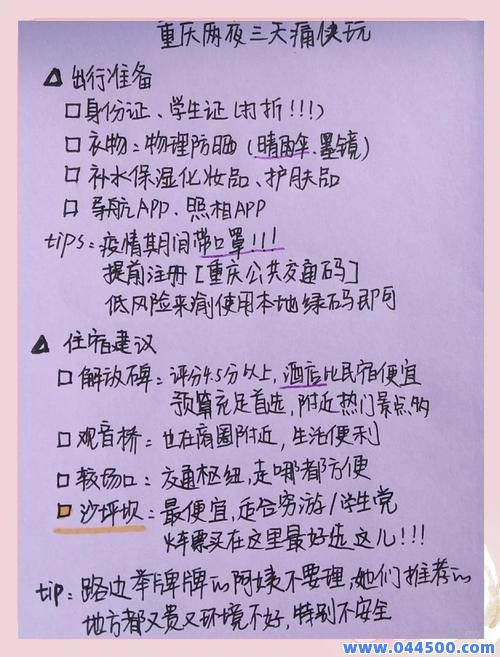 重庆两夜三天痛快玩
出行准备
身份证、学生证(打折!!!)
衣物:物理防晒(晴雨伞、墨镜)
补水保湿化妆品、护肤品
导航APP、照相APP
tips:疫情期间带口罩!!!
提前注册[重庆公共交通码]
低风险来渝使用本地绿码即可
住宿建议
解放碑:评分4.5分以上,酒店比民宿便宜
预算充足首选,附近热门景点多
观音桥:也在商圈附近,生活便利
较场口:交通枢纽,走哪都方便
沙坪坝:最便宜,适合穷游/学生党
火车票买在这里最好选这儿!!!
tip:路边举牌牌的阿姨不要理,她们推荐的
地方都又贵又环境不好,特别不安全
www.044500.com